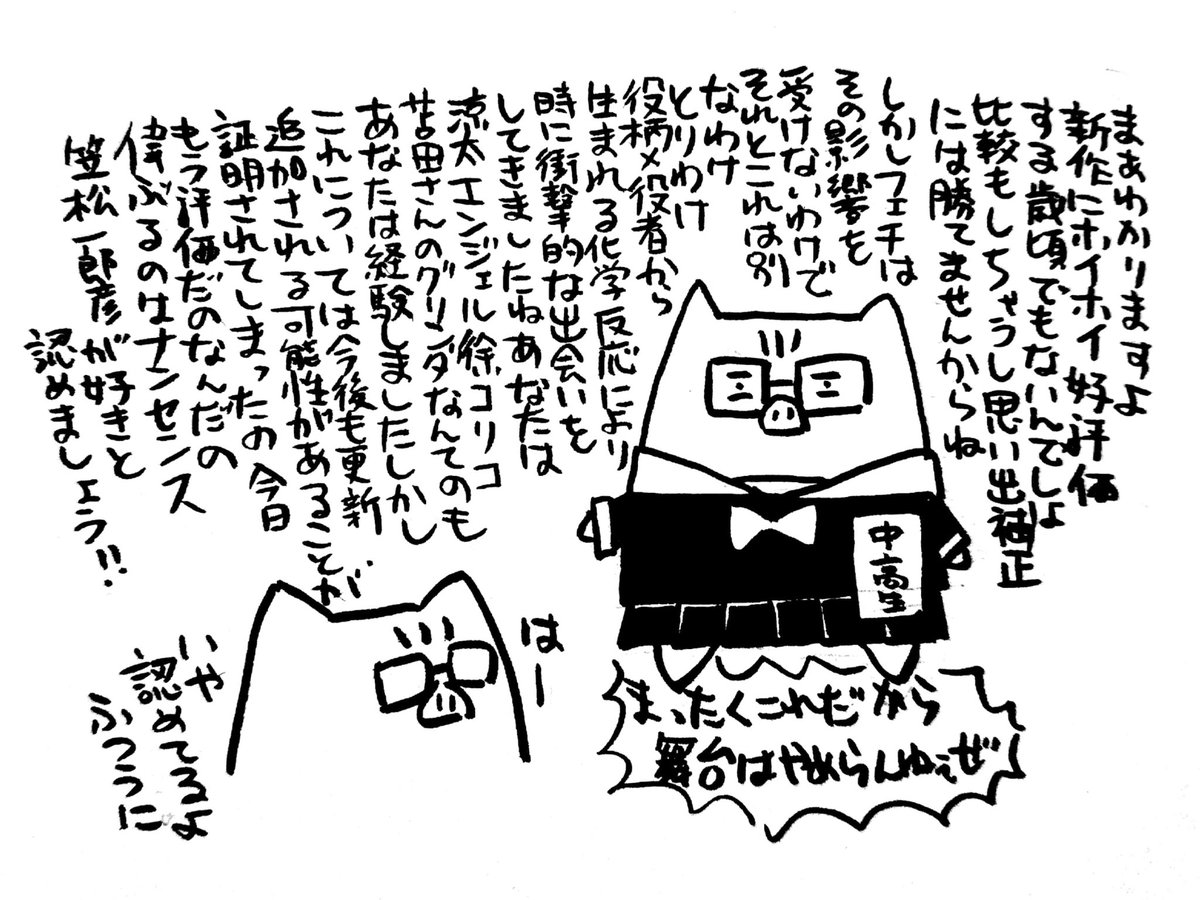 まぁわかりますよ
新作にホイホイ好評価
する歳頃でもないんでしょ
比較もしちゃうし思い出補正
には勝てませんからね
しかしフェチは
その影響を
受けないわけで
それとこれは別
なわけ
とりわけ
役柄×役者から
生まれる化学反応により
時に衝撃的な出会いを
してきましたねあなたは
涼太エンジェル徐コリコ
苫田さんのグリンダなんてのも
あなたは経験しましたしかし
これについては今後も更新
追加される可能性があることが
証明されてしまったの今日
もう評価だのなんだの
偉ぶるのはナンセンス
笠松一郎彦が好きと
認めましょう!!
中高生
まったくこれだから
舞台はやめらんねぇぜ
はー
いや
認めてるよ
ふつうに